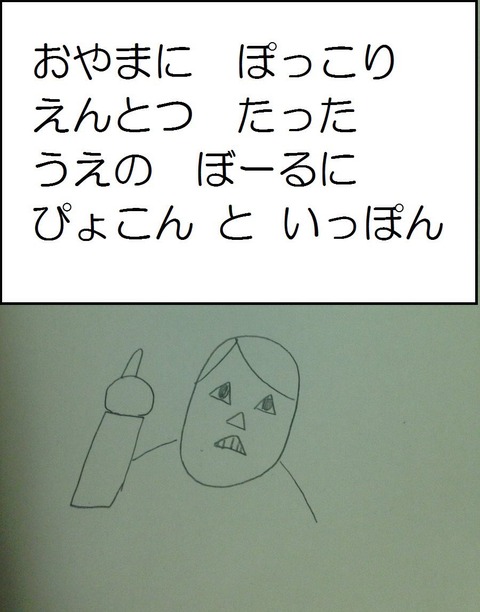 おやまに　ぽっこり
えんとつ　たった
うえの　ぼーるに
ぴょこん　と　いっぽん